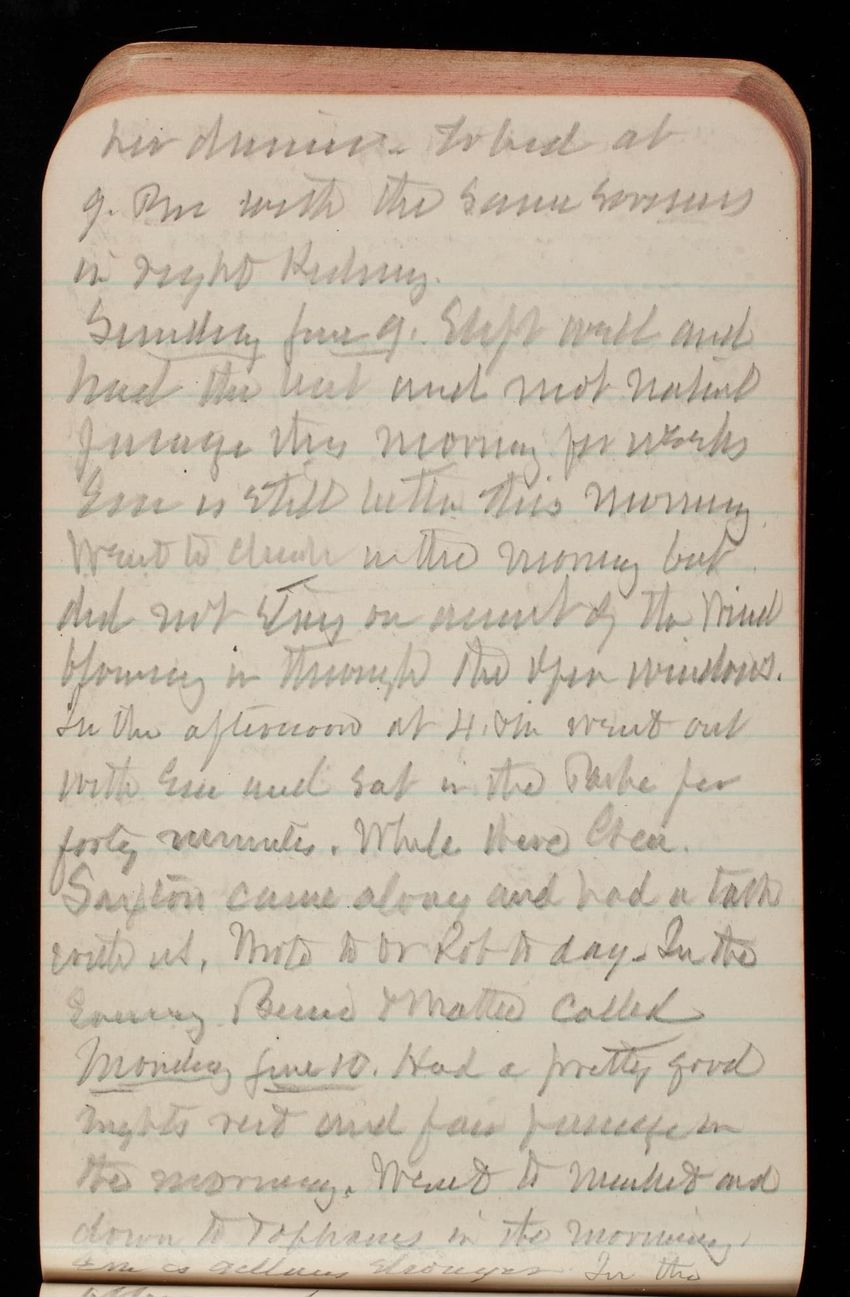 her dinner. To bed at
9. Pm with the same soreness
in right Kidney.
Sunday June 9. Slept well and
had the best and most natural
passage this morning for weeks
Em is still better this morning
Went to church in the morning but
did not stay on account of the Wind
blowing in through the open windows.
In the afternoon at 4. went out
with Em and sat in the Parke for
forty minutes. While there
Saxton came along and had a talk
with us. Wrote to Dr Rob to day. In the
Evening & Mattie called
Monday June 10. Had a pretty good
nights rest and fair passage in
the morning. Went to Market and
down to Tophams in the morning.
Em is stronger. In the